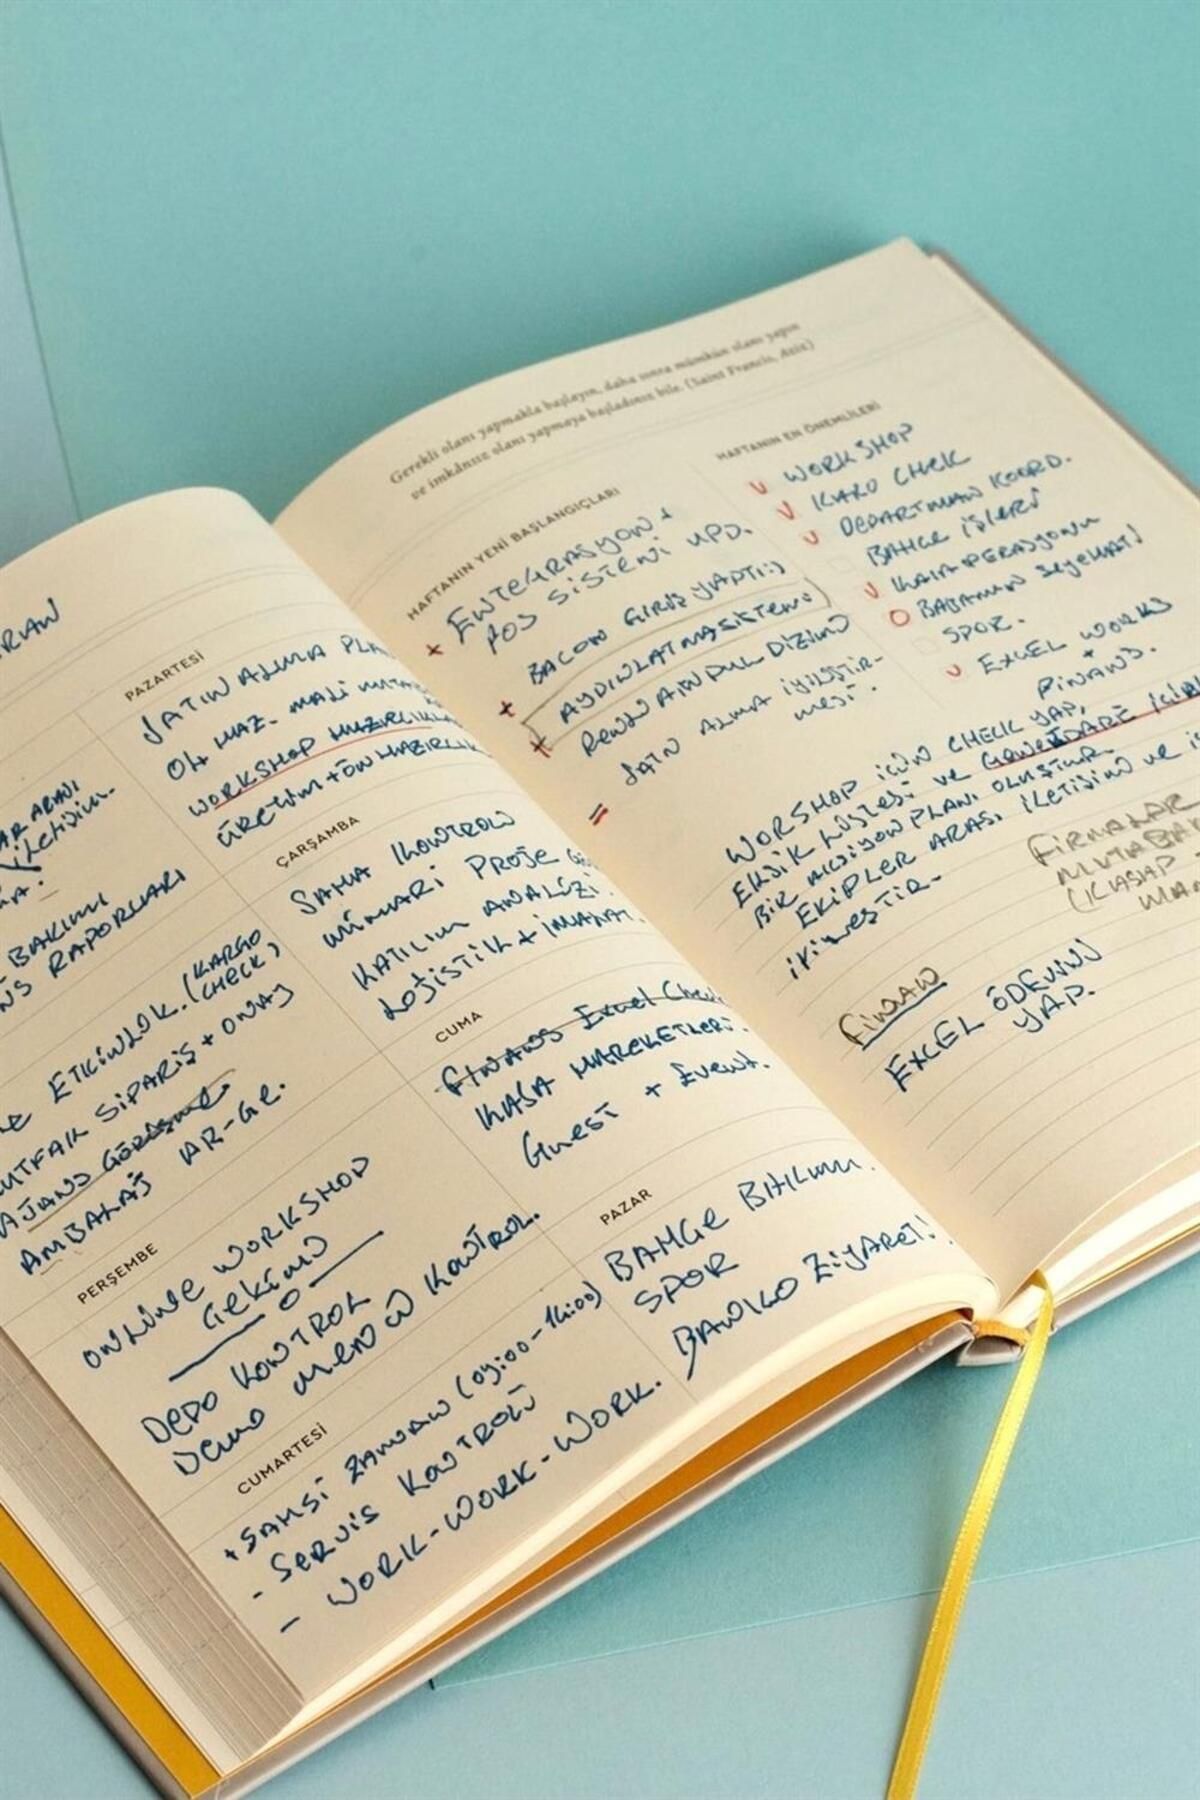 PAZARTESİ
SATIN ALMA PLA
WORKSHOP HAZIRLIKLA
ÜRETİM + ÖN HAZIRLIK
İLETİŞİM.
BAKIMI
RAPORLARI
ÇARŞAMBA
SAHA KONTROLÜ
MİMARİ PROJE
KATILIM ANALİZİ
LOJİSTİK + İMALAT.
ETKİNLİK. (KARGO
CHECK)
MUTFAK SİPARİŞ + ONAY
AJANS GÖRÜŞME
AMBALAJ AR-GE.
CUMA
FİNANS Excel Check
KASA HAREKETLERİ.
Guest + Event.
PERŞEMBE
ONLINE WORKSHOP
ÇEKİMİ
DEPO KONTROL
DEMO MENÜ KONTROL.
CUMARTESİ
+ SAHSİ ZAMAN (09:00-14:00)
- SERVİS KONTROLÜ
- WORK-WORK-WORK.
PAZAR
BAHÇE BAKIMI.
SPOR
BANKO ZİYARET!
Gerekli olanı yapmakla başlayın, daha sonra mümkün olanı yapın
ve imkânsız olanı yapmaya başladınız bile. (Saint Francis, Aziz)
HAFTANIN YENİ BAŞLANGIÇLARI
+ ENTEGRASYON +
POS SİSTEMİ UPD.
BACON GİRİŞ YAPTI :)
AYDINLATMA SİSTEMİ
SATIN ALMA İYİLEŞTİR-
MESİ.
HAFTANIN EN ÖNEMLİLERİ
WORKSHOP
KARGO CHECK
DEPARTMAN KOORD.
BAHÇE İŞLERİ
KASA OPERASYONU
BABAMIN SEYEHATİ
SPOR.
EXCEL WORKS
+
FİNANS.
WORSHOP İÇİN CHECK YAP,
EKSİK LİSTESİ VE
BİR AKSİYON PLANI OLUŞTUR
EKİPLER ARASI İLETİŞİMİ VE
FİRMALAR
MUTABAK
(KASAP
FİNANS
EXCEL ÖDEMİNİ
YAP.